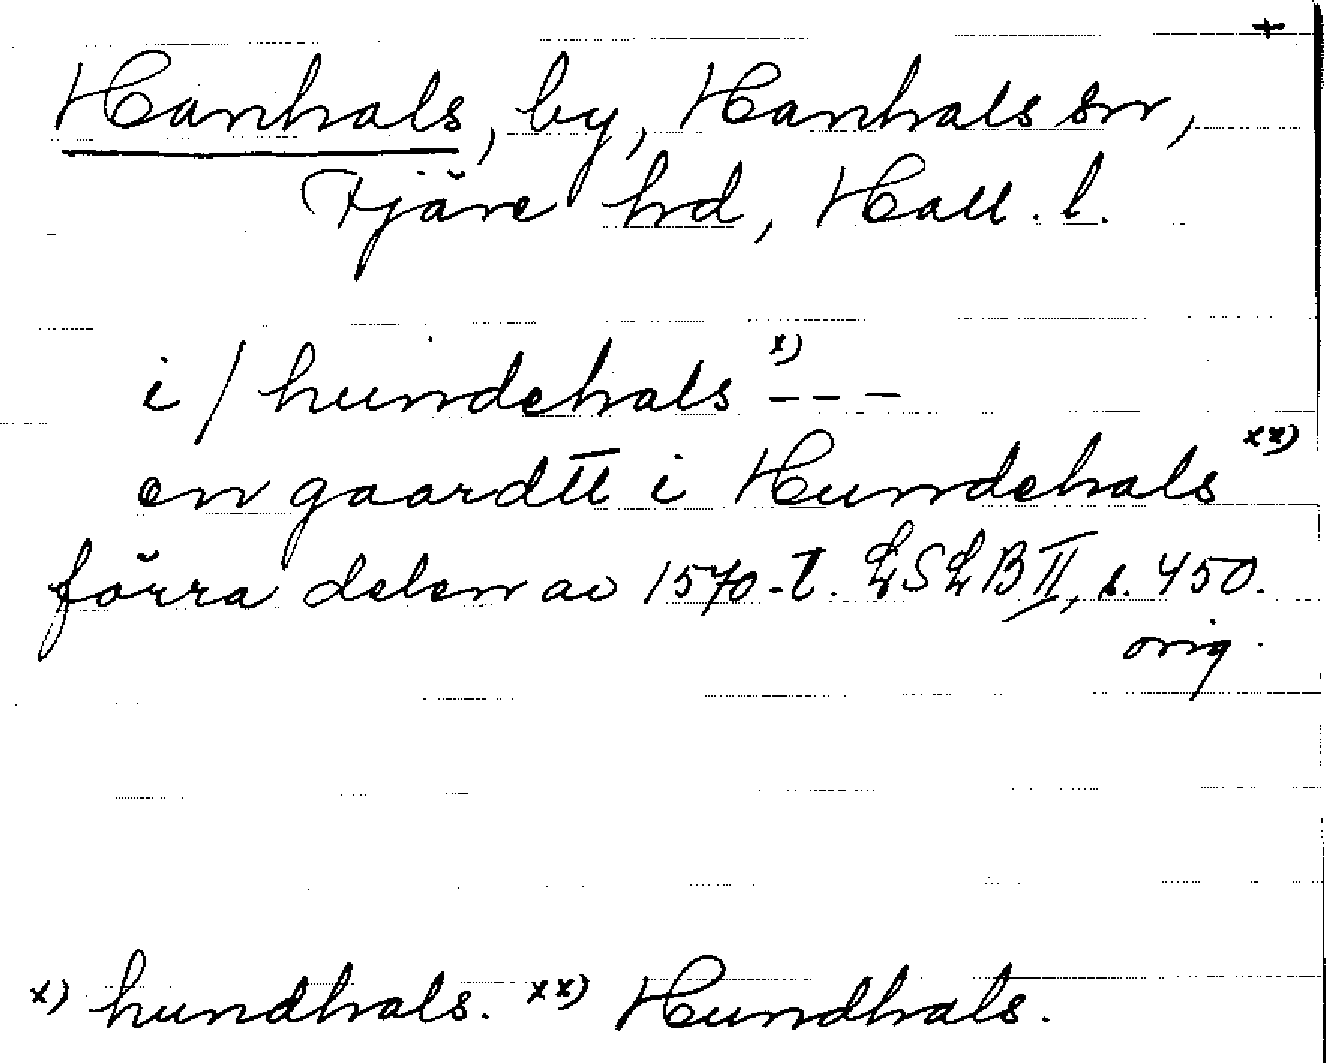 +
Hanhals, by, Hanhals sn,
Fjäre hd, Hall. l.
i / hundehals x) - - -
en gaardtt i Hundehals xx)
förra delen av 1570-t. LSLB II, s. 450.
orig.
x) hundhals. xx) Hundhals.